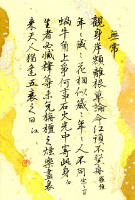 無常
觀身岸額離根草論命江頭不繫舟 羅維
年々歳々花相似歳々年々人不同
蝸牛角上爭何事石火光中寄此身
生者必滅釋尊未免栴檀之煙樂盡哀
來天人猶逢五衰之日 江